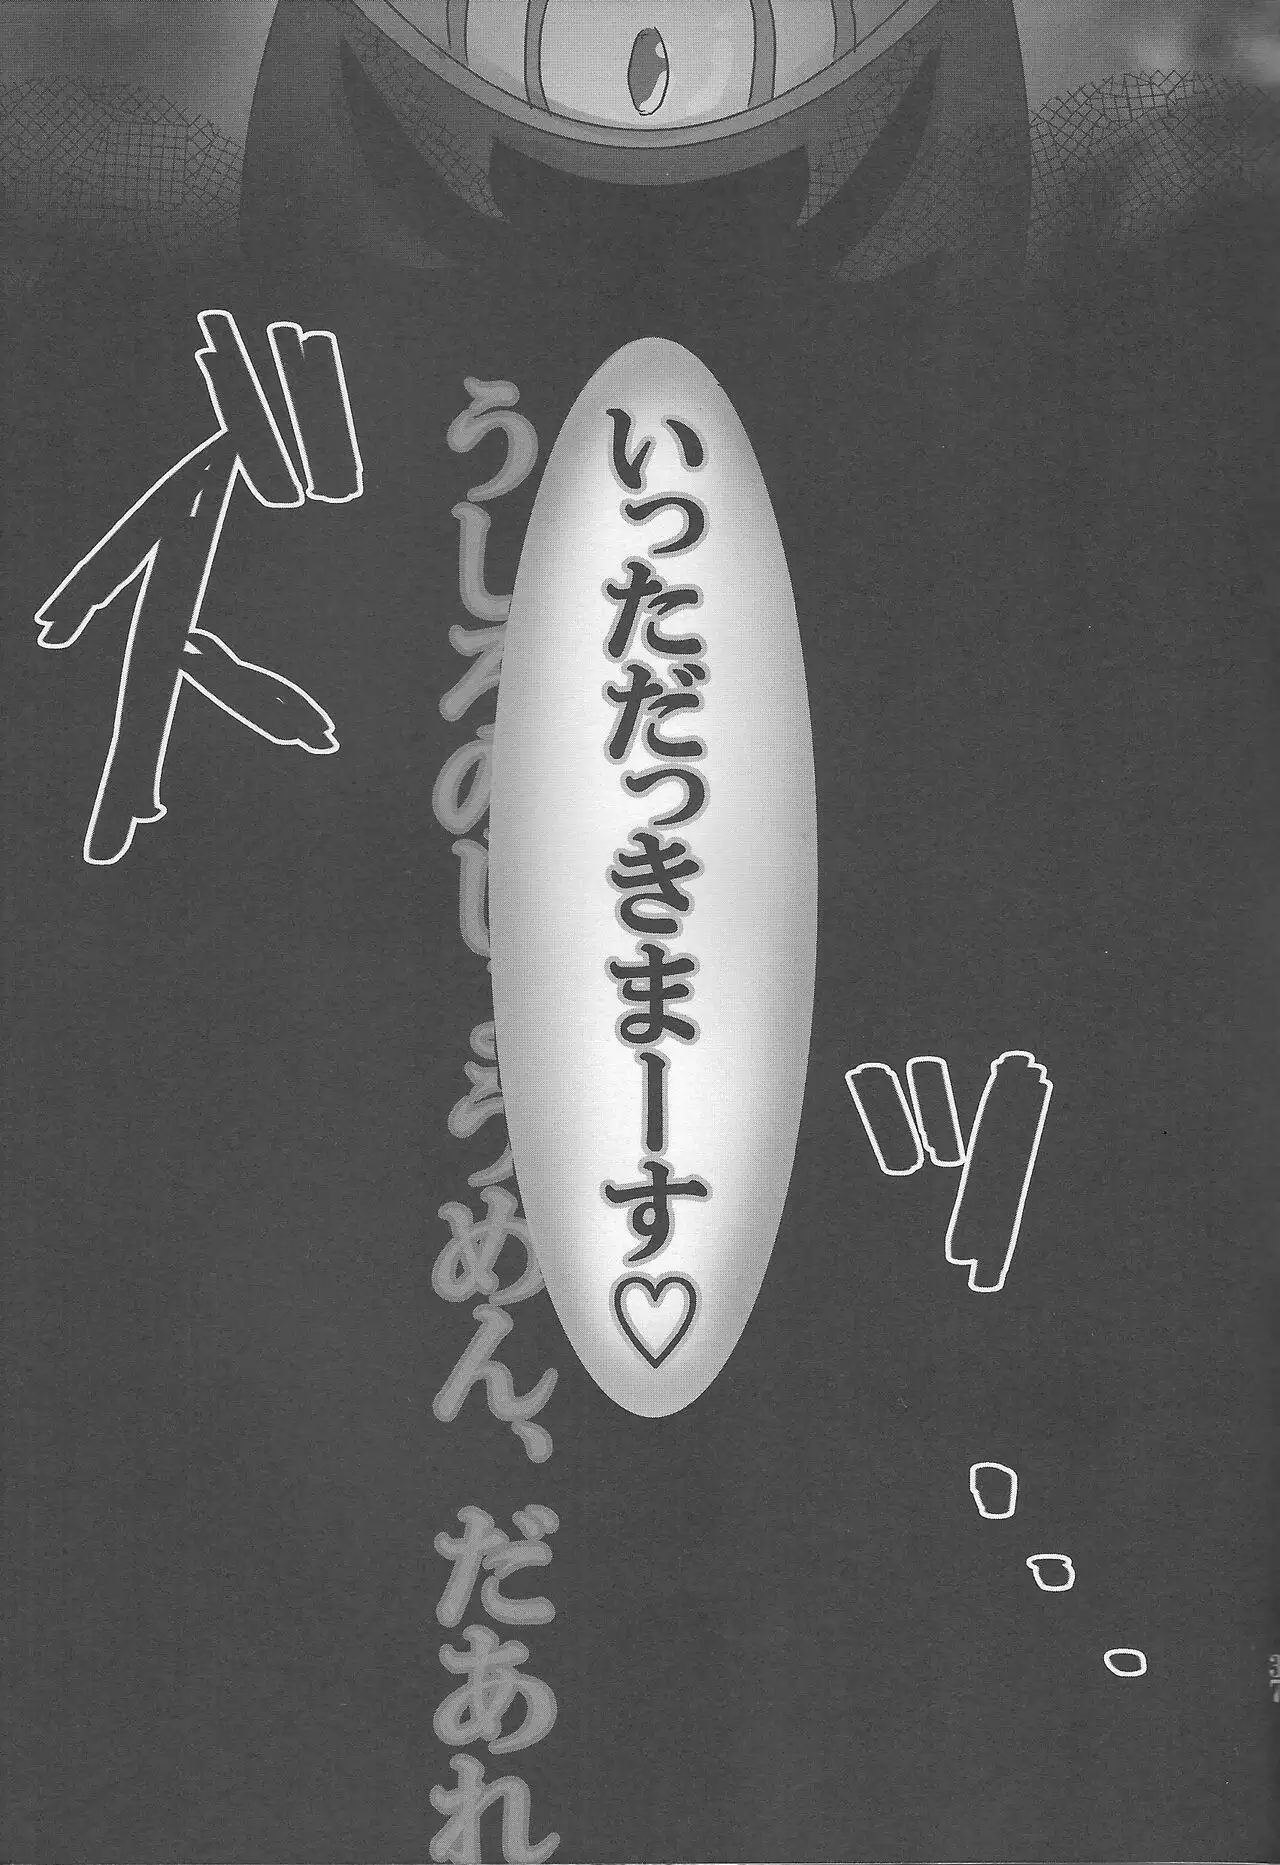 いっただだっきまーす♡
うしろのしょうめん、だあれ
ズッ…
37